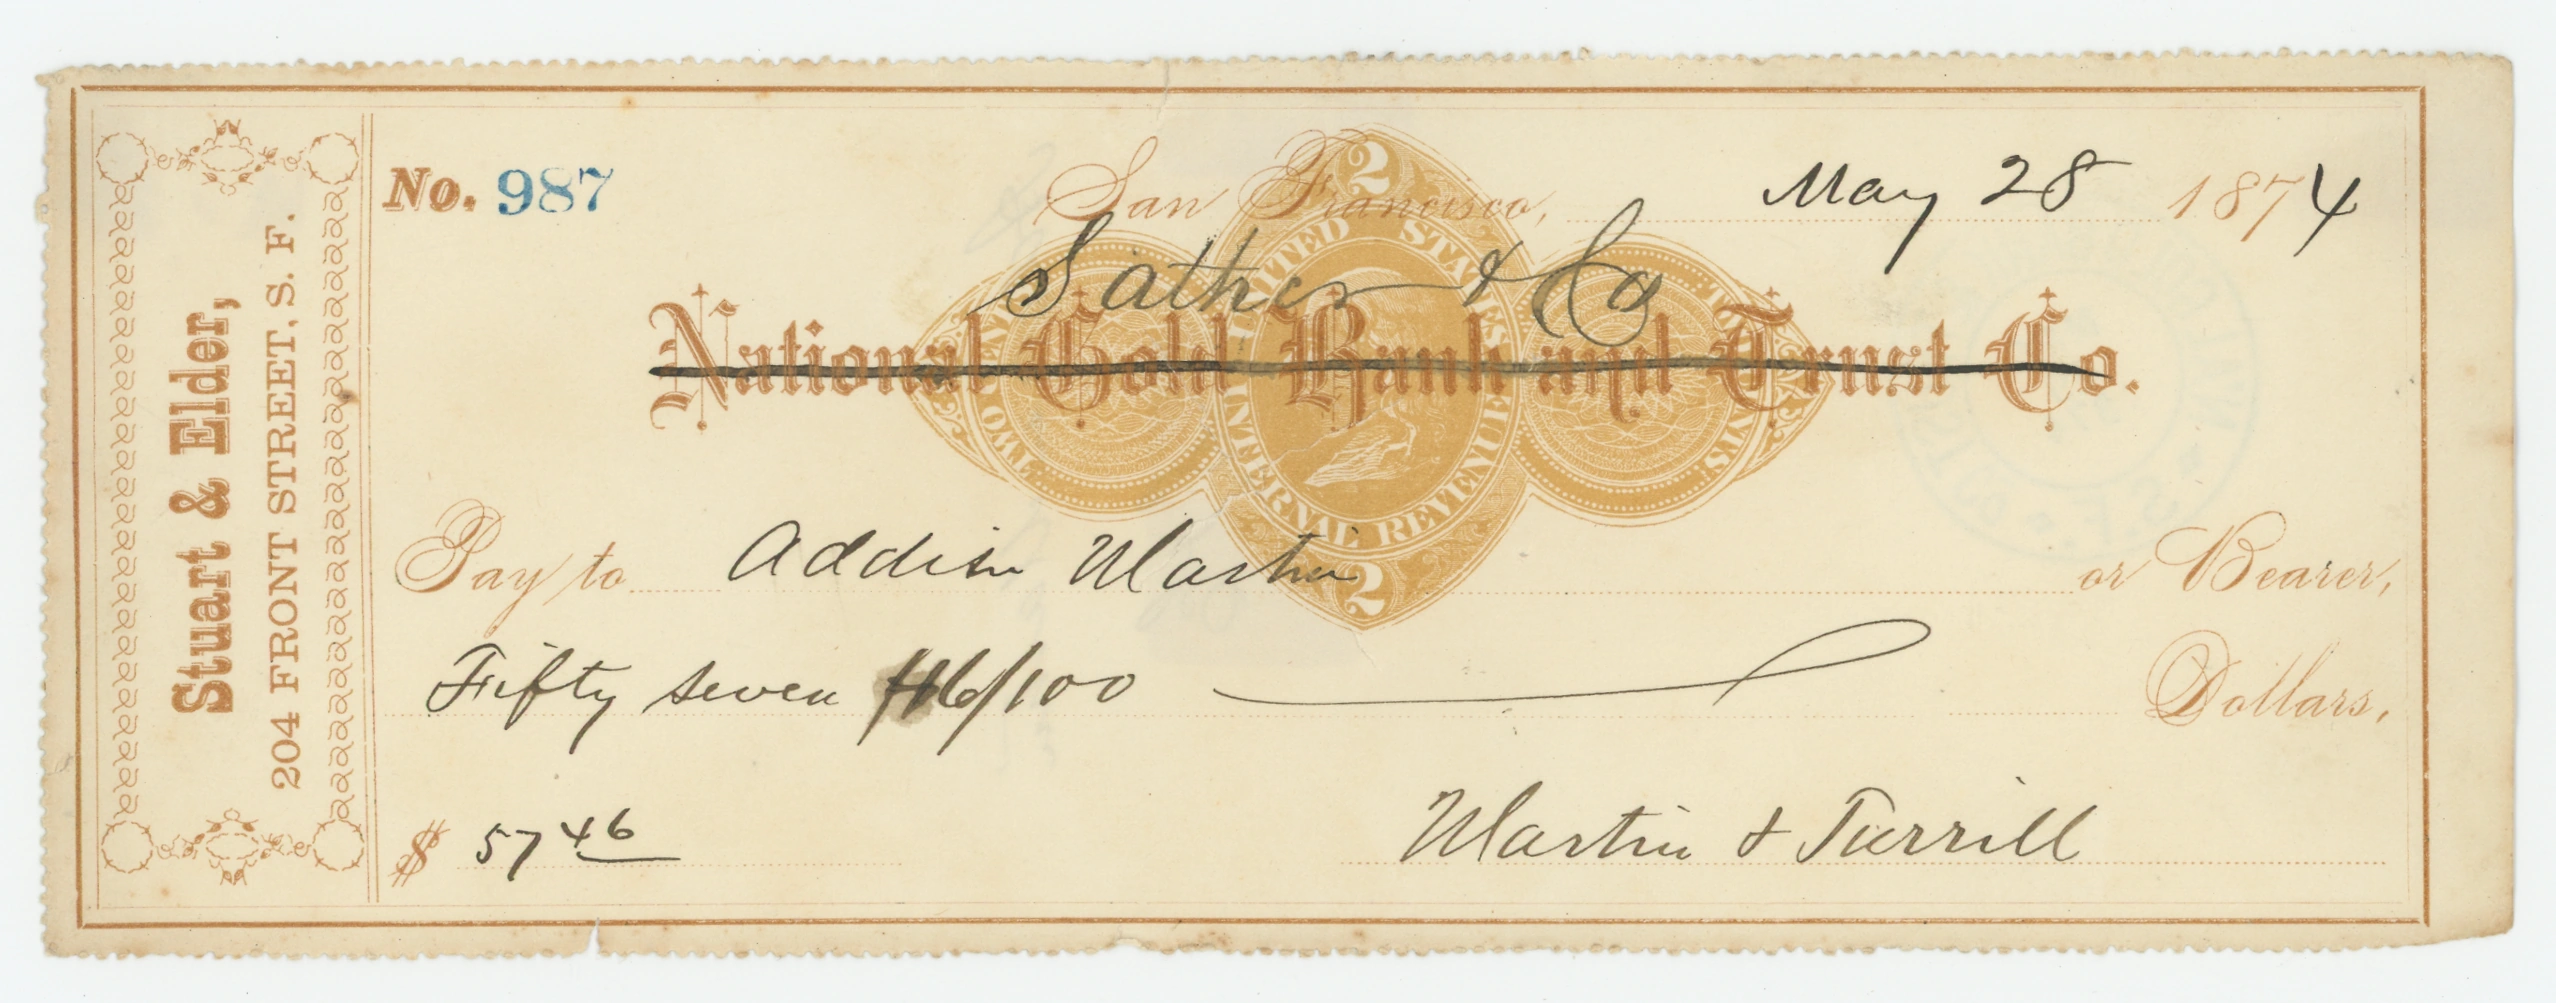 Stuart & Elder,
204 FRONT STREET, S. F.
No. 987
San Francisco, May 28 1874
Sather & Co
National Gold Bank and Trust Co.
2
UNITED STATES
INTERNAL REVENUE
TWO CENTS
TWO CENTS
2
Pay to Addison Martin or Bearer,
Fifty seven 46/100 Dollars,
$ 57 46
Martin & Turrill